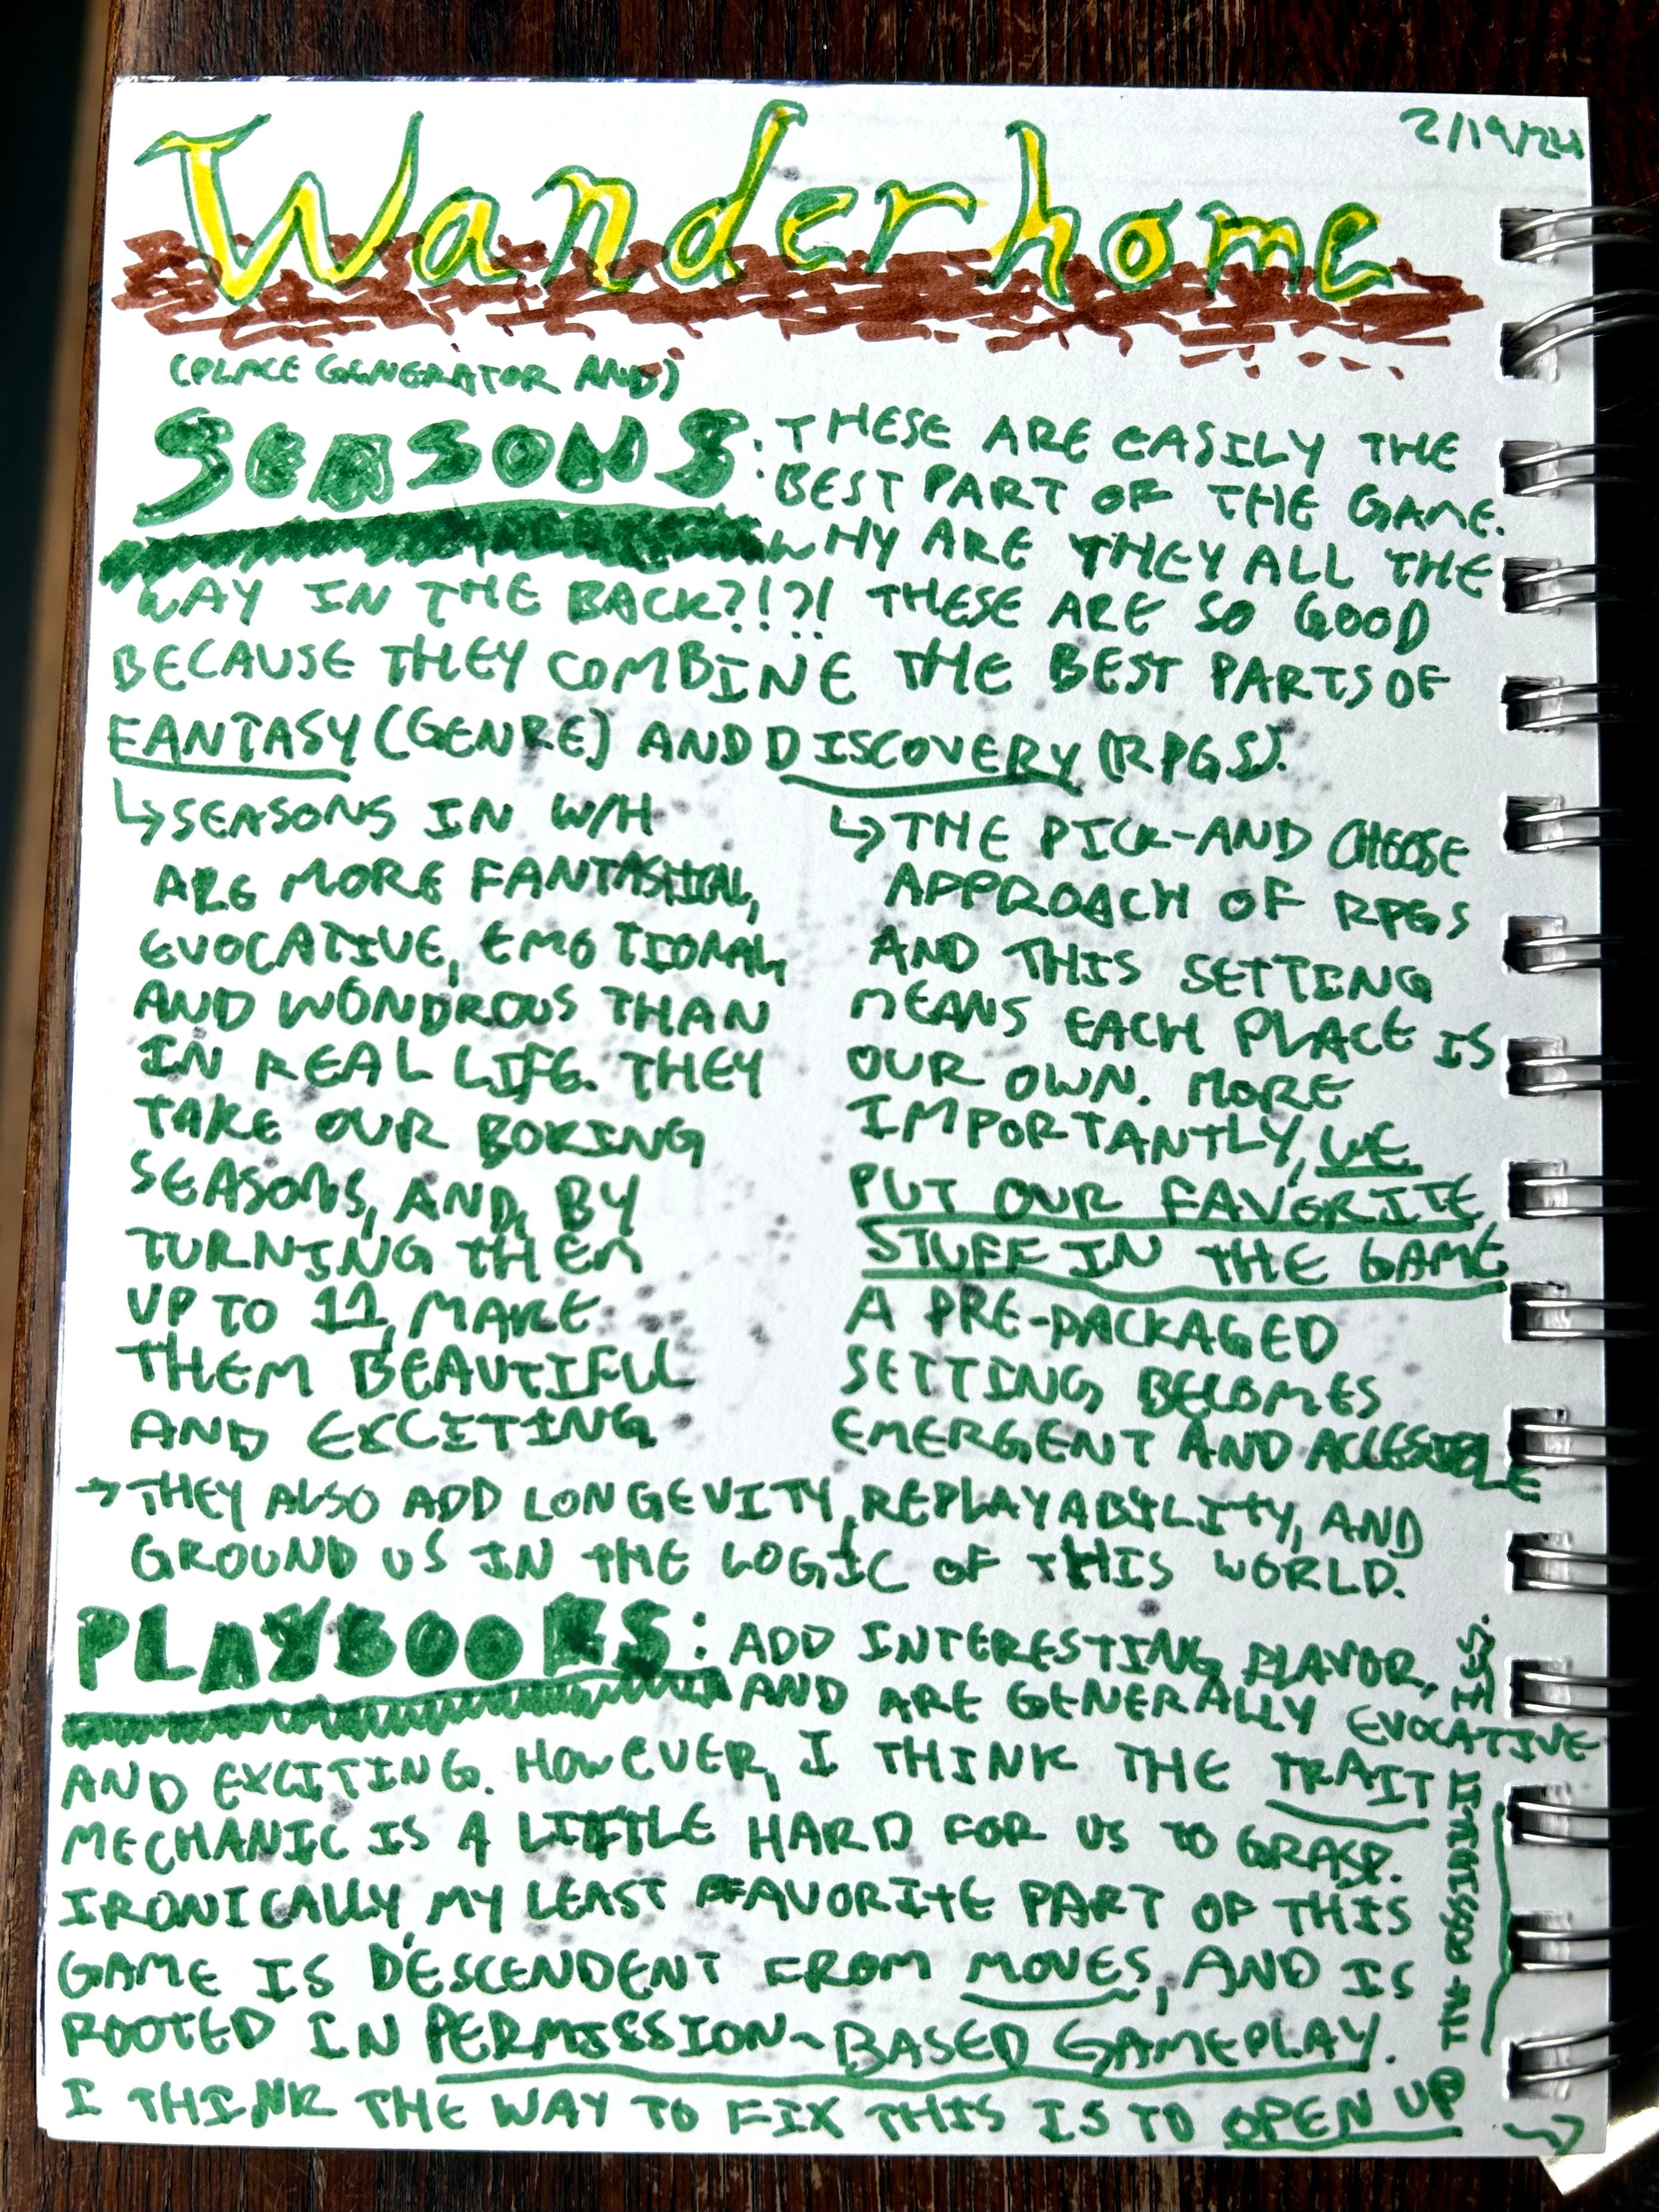 2/19/24
Wanderhome
(PLACE GENERATOR AND)
SEASONS: THESE ARE EASILY THE
BEST PART OF THE GAME.
WHY ARE THEY ALL THE
WAY IN THE BACK?!?! THESE ARE SO GOOD
BECAUSE THEY COMBINE THE BEST PARTS OF
FANTASY (GENRE) AND DISCOVERY (RPGS).
↳ SEASONS IN W/H
ARE MORE FANTASTICAL,
EVOCATIVE, EMOTIONAL,
AND WONDROUS THAN
IN REAL LIFE. THEY
TAKE OUR BORING
SEASONS, AND, BY
TURNING THEM
UP TO 11, MAKE
THEM BEAUTIFUL
AND EXCITING
↳ THE PICK-AND CHOOSE
APPROACH OF RPGS
AND THIS SETTING
MEANS EACH PLACE IS
OUR OWN. MORE
IMPORTANTLY, WE
PUT OUR FAVORITE
STUFF IN THE GAME
A PRE-PACKAGED
SETTING BECOMES
EMERGENT AND ACCESSIBLE
→ THEY ALSO ADD LONGEVITY, REPLAYABILITY, AND
GROUND US IN THE LOGIC OF THIS WORLD.
PLAYBOOKS: ADD INTERESTING FLAVOR,
AND ARE GENERALLY EVOCATIVE
AND EXCITING. HOWEVER, I THINK THE TRAIT
MECHANIC IS A LITTLE HARD FOR US TO GRASP.
IRONICALLY, MY LEAST FAVORITE PART OF THIS
GAME IS DESCENDENT FROM MOVES, AND IS
ROOTED IN PERMISSION-BASED GAMEPLAY.
I THINK THE WAY TO FIX THIS IS TO OPEN UP →
THE POSSIBILITIES.